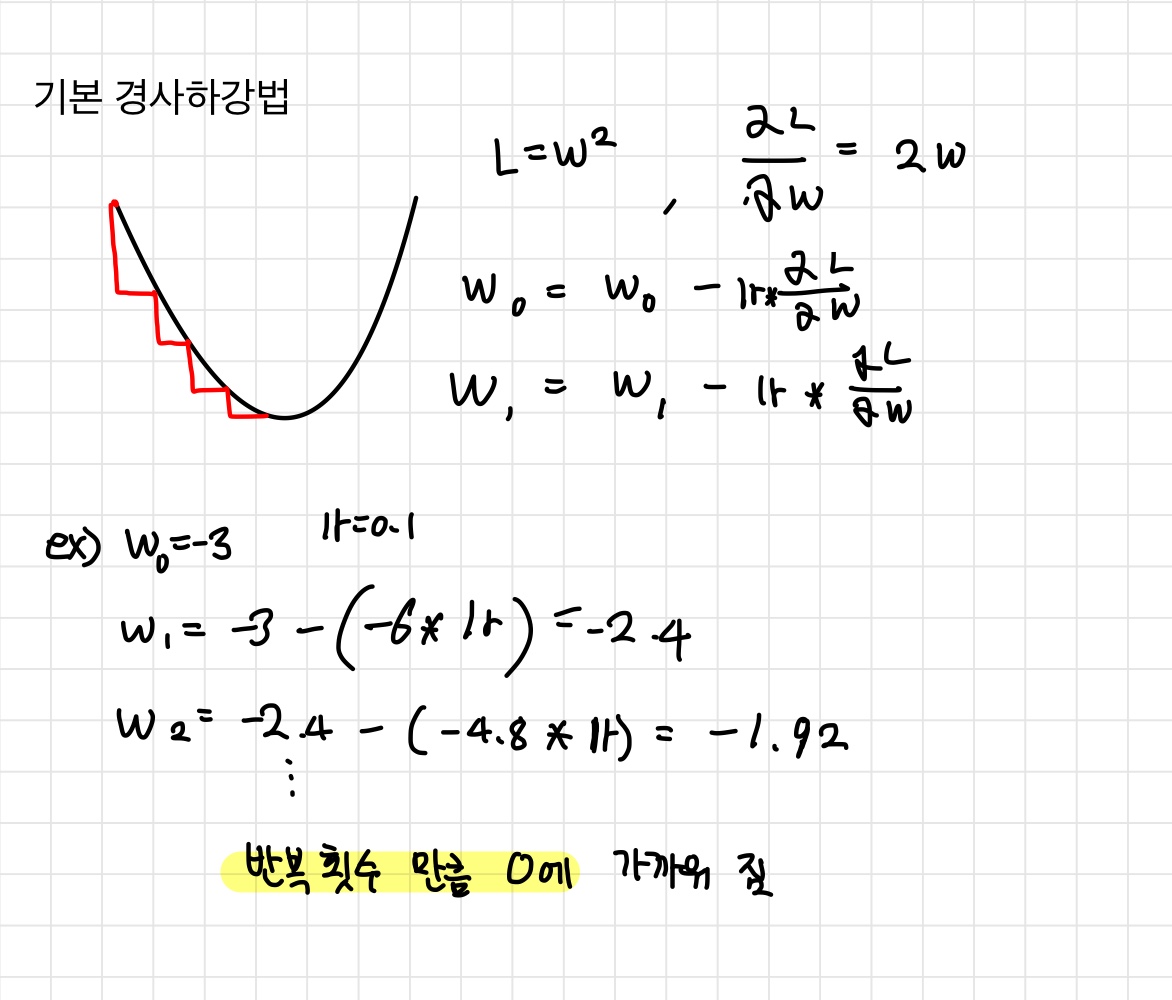 기본 경사하강법
L=W² , ∂L/∂W = 2W
W₀ = W₀ - lr*∂L/∂W
W₁ = W₁ - lr * ∂L/∂W
ex) W₀=-3 lr=0.1
W₁= -3 - (-6* lr) = -2.4
W₂= -2.4 - (-4.8 * lr) = -1.92
⋮
반복횟수 만큼 0에 가까워 짐